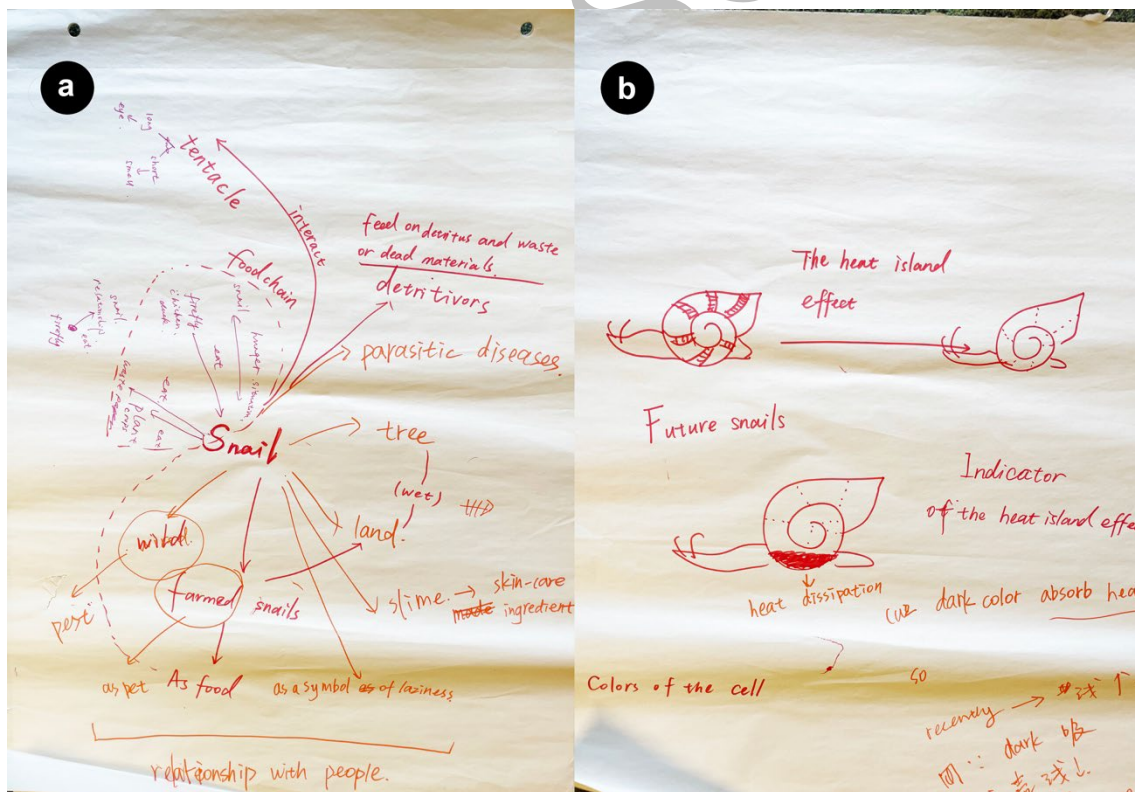 a
long
eye.
short
smell
tentacle
interact
feed on detritus and waste
or dead materials.
detritivors
food chain
snail
hunger situation
firefly
chicken
duck
eat
parasitic diseases.
snail
relationship
eat
firefly
eat
eat
plant
Snail
tree
(wet)
land.
farmed
snails
slime. → skin-care
made ingredient
pest
as pet
As food
as a symbol as of laziness.
relationship with people.
b
The heat island
effect
Future snails
Indicator
of the heat island effe
heat dissipation
dark color absorb hea
Colors of the cell
so
recently → 球 ↑
dark 吸
球 ↓